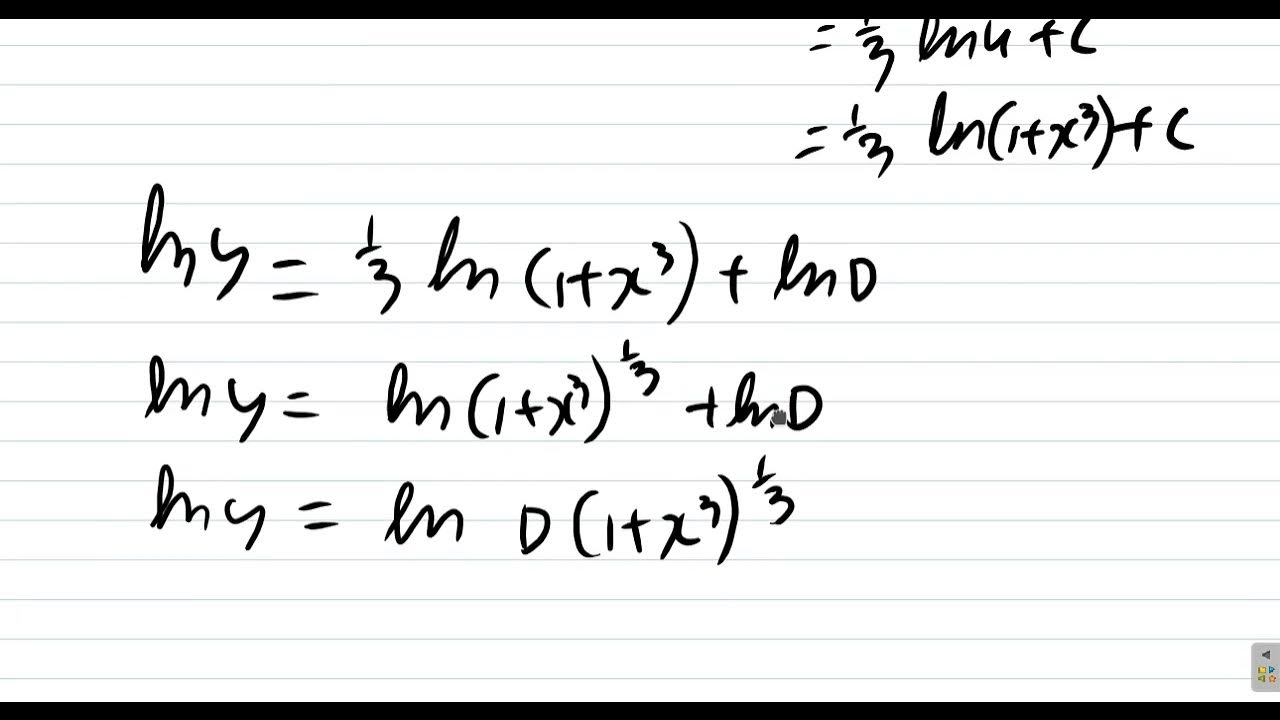 = 1/3 ln u + C
= 1/3 ln(1+x³) + C
ln y = 1/3 ln (1+x³) + ln D
ln y = ln (1+x³)^1/3 + ln D
ln y = ln D (1+x³)^1/3